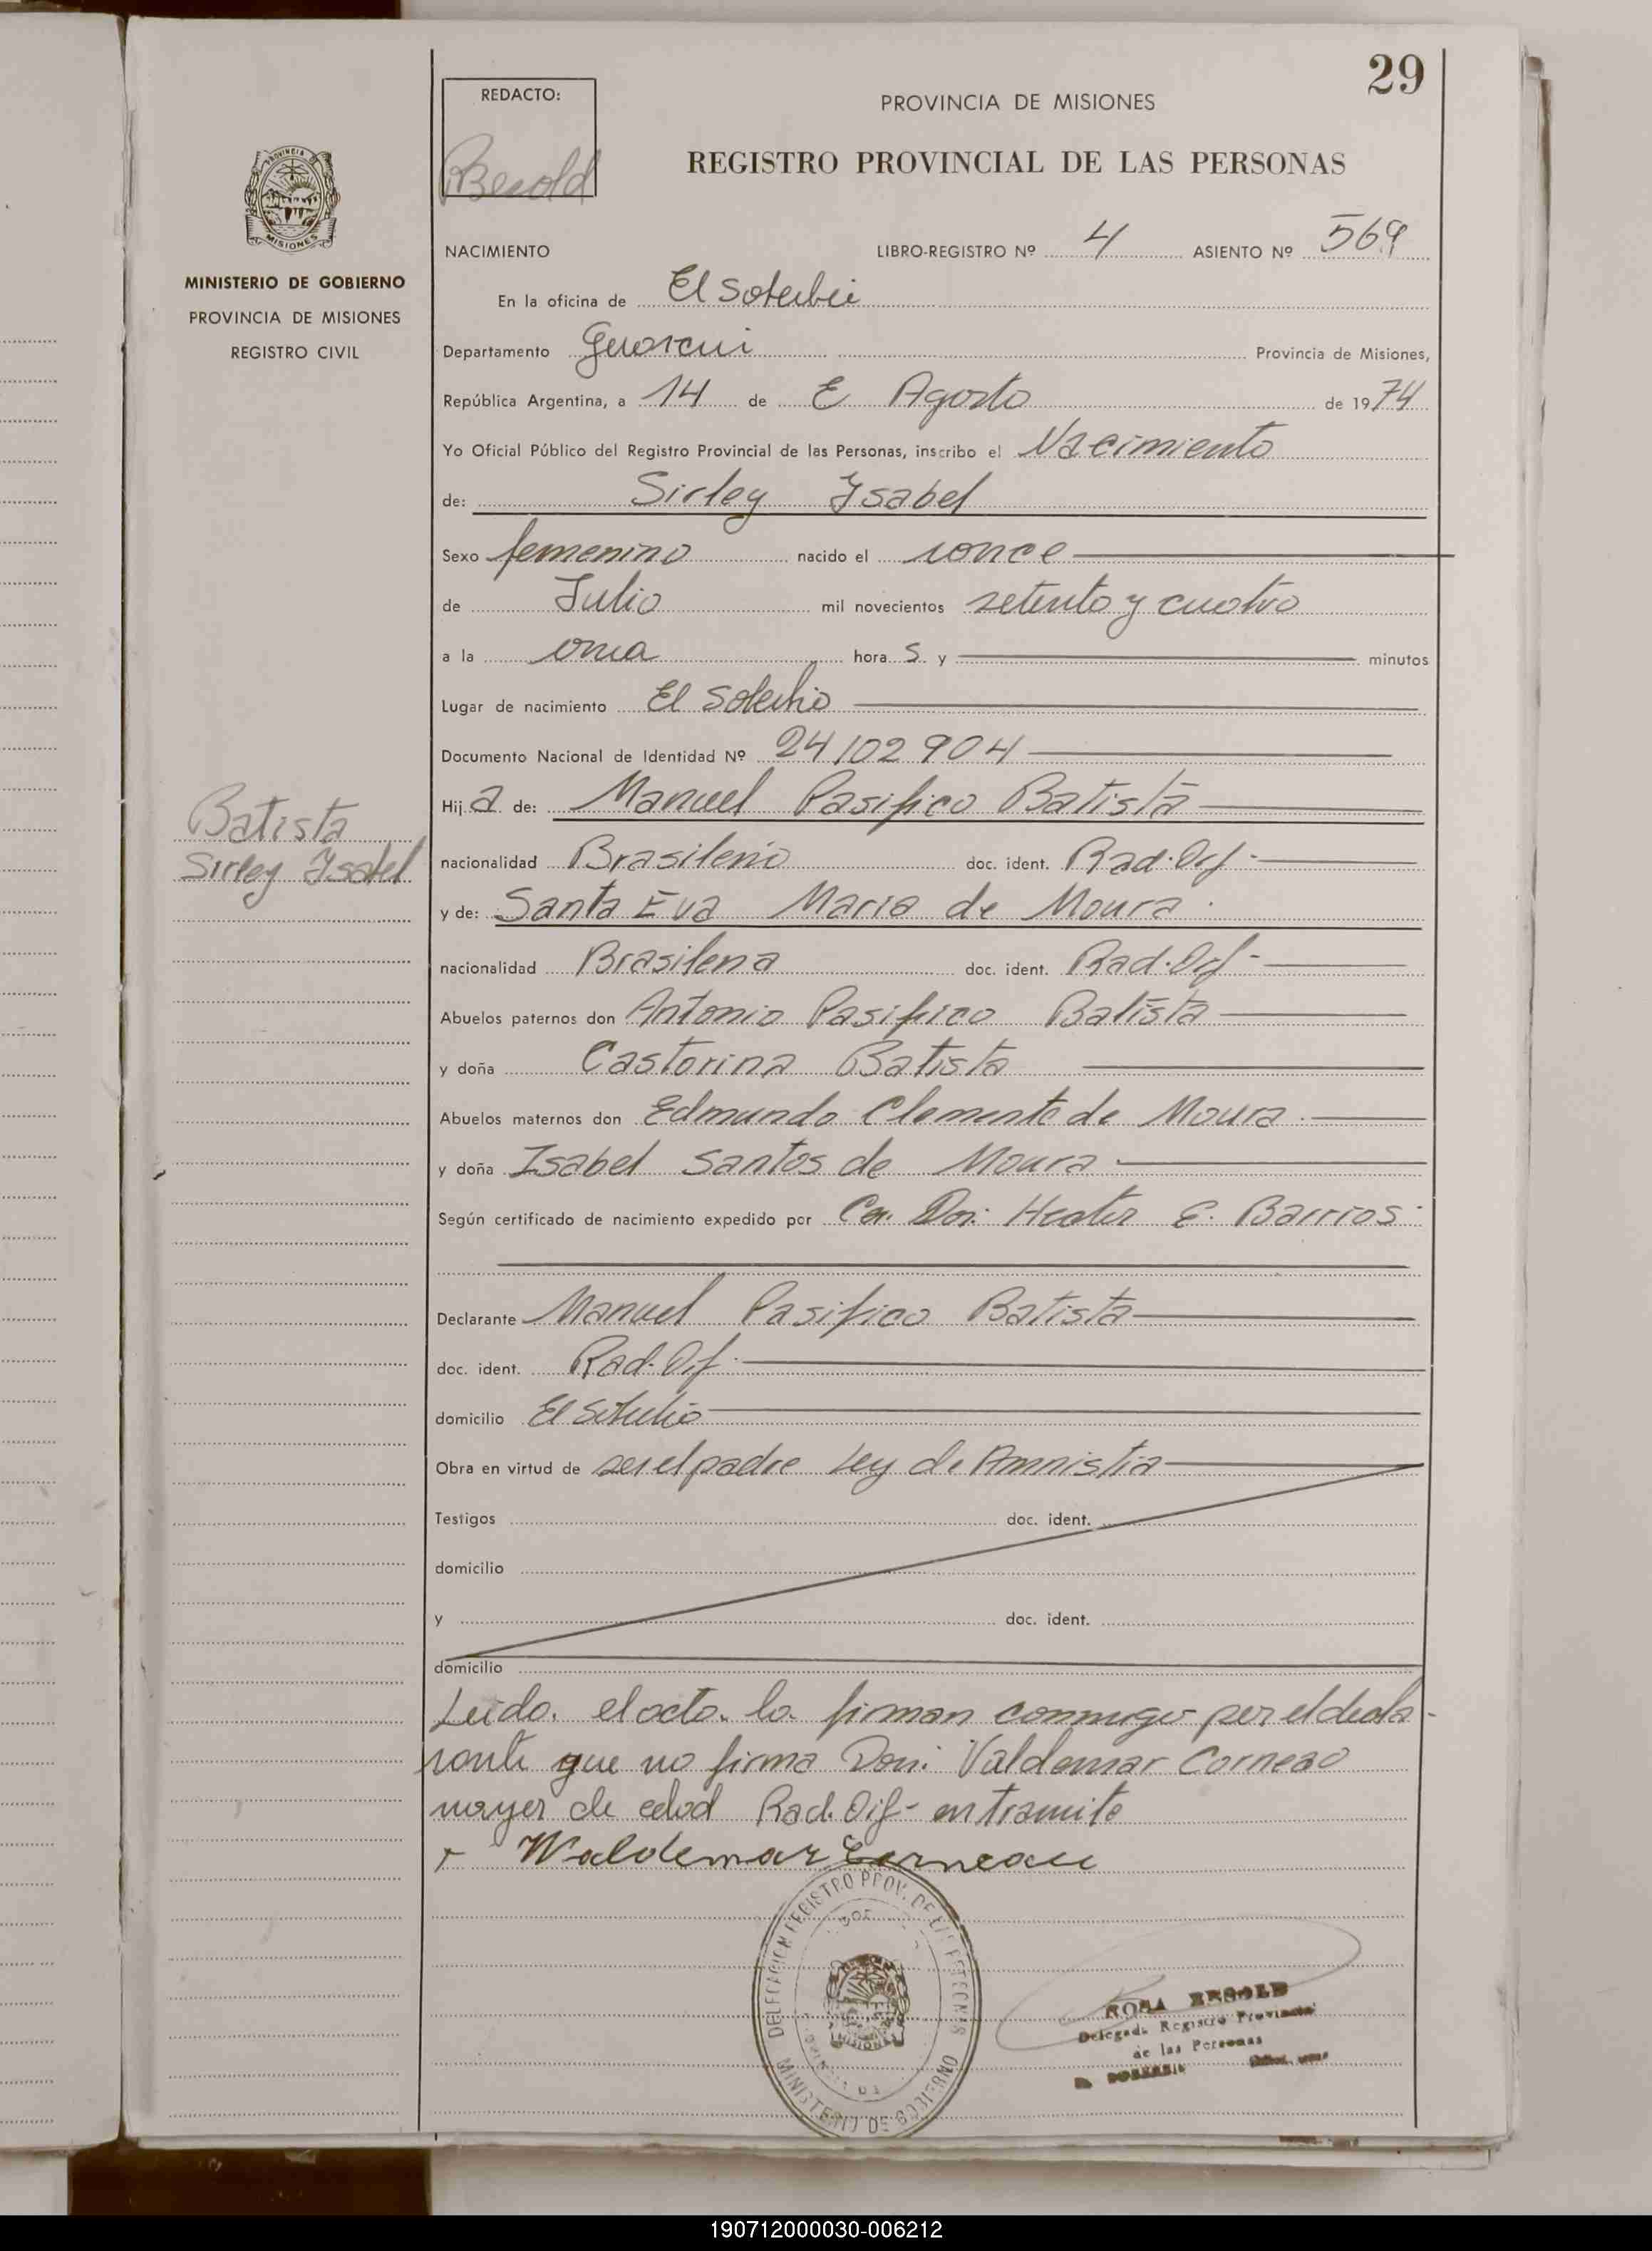 29
REDACTO:
PROVINCIA DE MISIONES
Besold
REGISTRO PROVINCIAL DE LAS PERSONAS
NACIMIENTO LIBRO-REGISTRO Nº 4 ASIENTO Nº 569
MINISTERIO DE GOBIERNO
PROVINCIA DE MISIONES
REGISTRO CIVIL
En la oficina de El Soberbio
Departamento Guarani Provincia de Misiones,
República Argentina, a 14 de E Agosto de 1974
Yo Oficial Público del Registro Provincial de las Personas, inscribo el Nacimiento
de: Sirley Ysabel
Sexo femenino nacido el once
de Julio mil novecientos setenta y cuatro
a la una hora s y minutos
Lugar de nacimiento El Soberbio
Documento Nacional de Identidad Nº 24102904
Hij a de: Manuel Pasifico Batista
Batista
Sirley Ysabel
nacionalidad Brasileño doc. ident. Rad. Dif-
y de: Santa Eva Maria de Moura.
nacionalidad Brasilena doc. ident. Rad. Dif-
Abuelos paternos don Antonio Pasifico Batista
y doña Castorina Batista
Abuelos maternos don Edmundo Clemente de Moura.
y doña Isabel Santos de Moura
Según certificado de nacimiento expedido por Don: Hector E. Barrios
Declarante Manuel Pasifico Batista
doc. ident. Rad. Dif.
domicilio El Soberbio
Obra en virtud de ser el padre Ley de Amnistia
Testigos doc. ident.
domicilio
y doc. ident.
domicilio
Leido. el acta. la firman conmigo por el decla-
rante que no firma Don: Valdemar Corneao
mayor de edad Rad. Dif- en tramite
Waldemar Corneau
DELEGACION REGISTRO PROV. DE LAS PERSONAS
MISIONES
MINISTERIO DE GOBIERNO
ROSA BESOLD
Delegada Registro Provincial
de las Personas
190712000030-006212